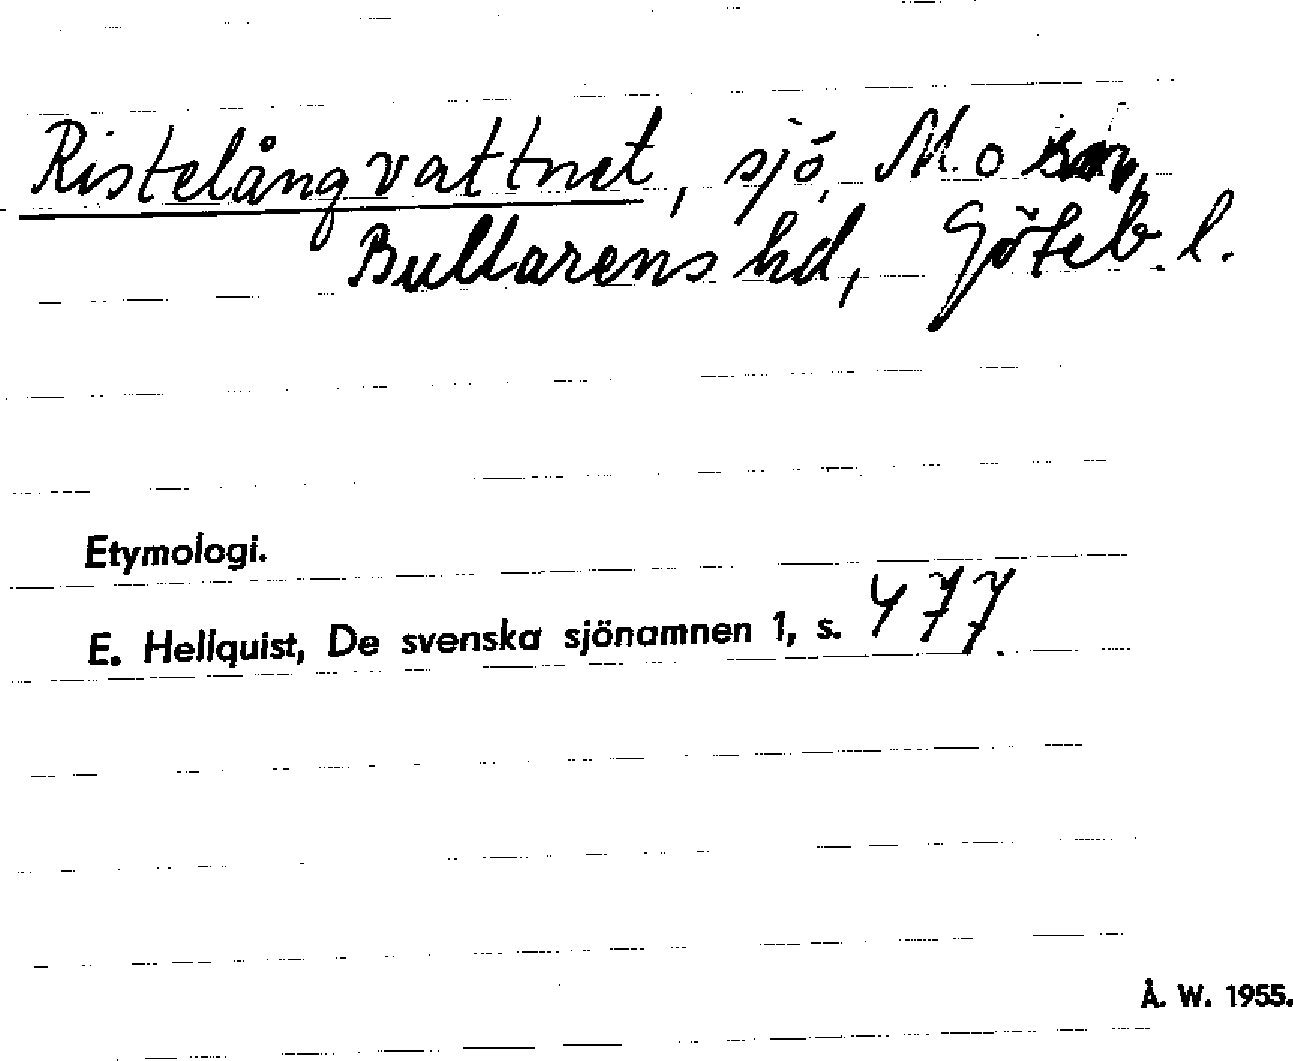 Ristelångvattnet, sjö, Mo sn,
Bullarens hd, Göteb. l.
Etymologi.
E. Hellquist, De svenska sjönamnen 1, s. 477.
Å. W. 1955.